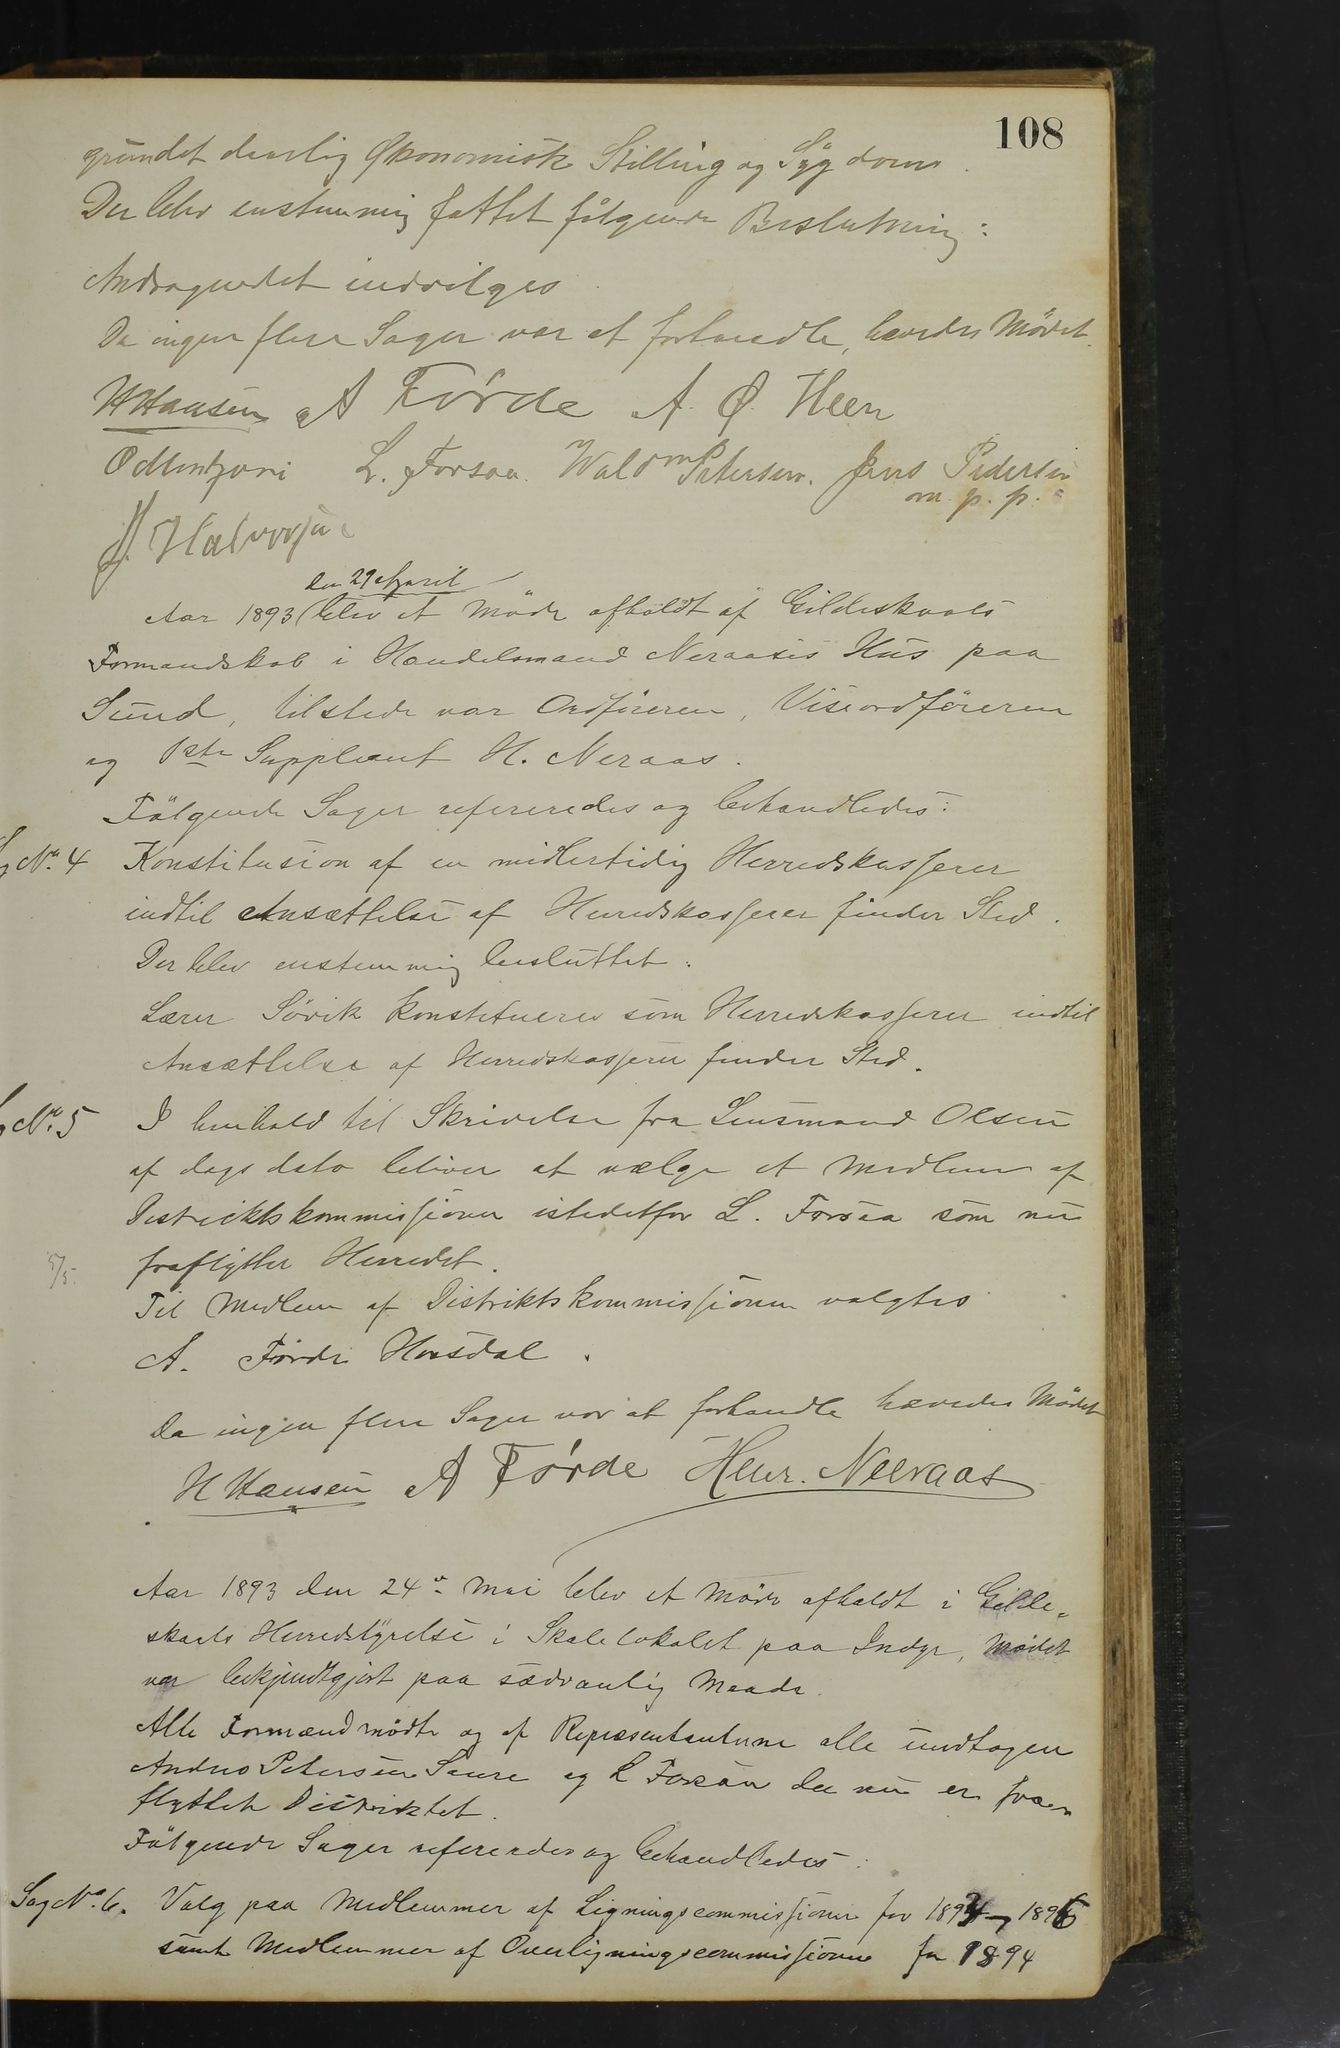 108
grundet daarlig Økonomisk Stilling og Sygdom.
Der blev enstemmig fattet følgende Beslutning:
Andragendet indvilges
Da ingen flere Sager var at forhandle, hævedes Mödet.
H Hansen A Förde A. Ø. Heen
O Mentzoni L. Forsaa. Waldm Petersen. Jens Pedersen
m. p. p.
J. Halvorsen
den 29 April
Aar 1893 blev et Möde afholdt af Gildeskaals
Formandskab i Handelsmand Neraases Hus paa
Sund, tilstede var Ordföreren, Viseordföreren
og 1ste Suppleant H. Neraas.
Fölgende Sager refereredes og behandledes:
Sag No. 4 Konstitusion af en midlertidig Herredskasserer
indtil Ansættelse af Herredskasserer finder Sted.
Der blev enstemmig besluttet:
Lærer Sövik konstitueres som Herredskasserer indtil
Ansættelse af Herredskasserer finder Sted.
Sag No. 5 I henhold til Skrivelse fra Lensmand Olsen
af dags dato bliver at vælge et Medlem af
Distriktskommissionen istedetfor L. Forsaa som nu
fraflytter Herredet.
5/5.
Til Medlem af Distriktskommissionen valgtes
A. Förde Horsdal.
Da ingen flere Sager var at forhandle hævedes Mödet
H Hansen A Förde Henr. Neeraas
Aar 1893 den 24de Mai blev et Möde afholdt i Gilde-
skaals Herredstyrelse i Skolelokalet paa Indyr, Mödet
var bekjendtgjort paa sædvanlig Maade.
Alle Formænd mödte og af Repræsentanterne alle undtagen
Andreas Petersen Saura og L Forsaa der nu er fra-
flyttet Distriktet.
Fölgende Sager refereredes og behandledes:
Sag No. 6. Valg paa Medlemmer af Ligningscommissionen for 1894-1896
samt Medlemmer af Overligningscommissionen for 1894